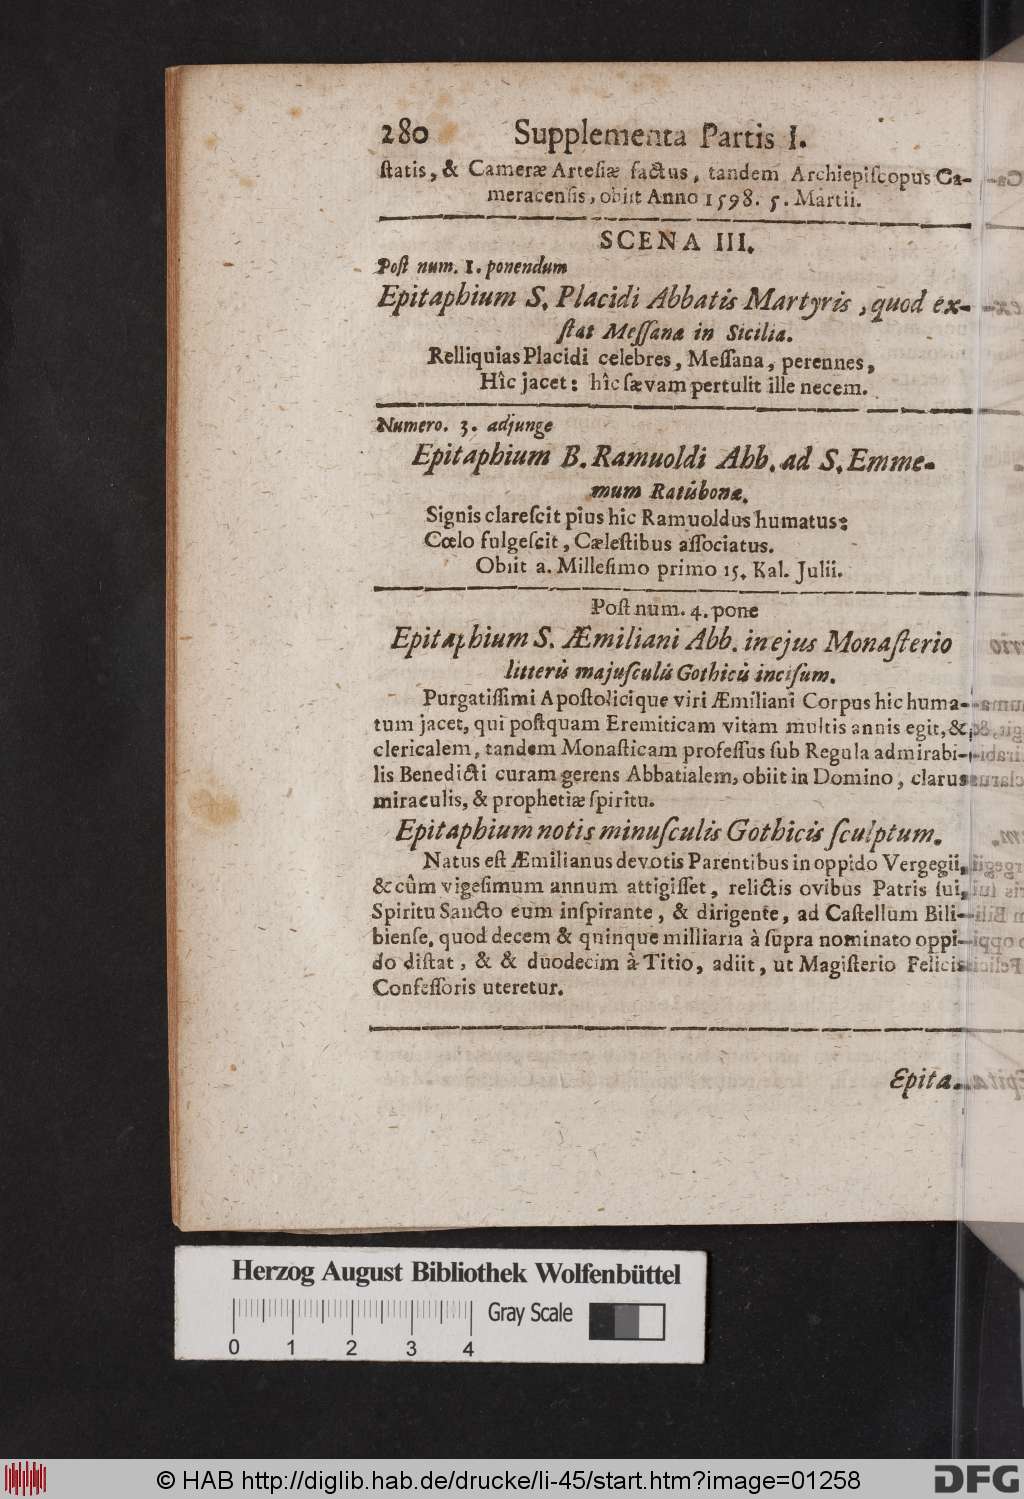 280 Supplementa Partis I.
ſtatis, & Cameræ Arteſiæ factus, tandem Archiepiſcopus Ca-
meracenſis, obiit Anno 1598. 5. Martii.
SCENA III.
Poſt num. 1. ponendum
Epitaphium S. Placidi Abbatis Martyris, quod ex-
ſtat Meſſanæ in Sicilia.
Relliquias Placidi celebres, Meſſana, perennes,
Hîc jacet: hîc ſævam pertulit ille necem.
Numero. 3. adjunge
Epitaphium B. Ramuoldi Abb. ad S. Emme-
mum Ratisbonæ.
Signis clareſcit pius hic Ramuoldus humatus:
Cœlo fulgeſcit, Cæleſtibus aſſociatus.
Obiit a. Milleſimo primo 15. Kal. Julii.
Poſt num. 4. pone
Epitaphium S. Æmiliani Abb. in ejus Monaſterio
litteris majuſculis Gothicis inciſum.
Purgatiſſimi Apoſtolicique viri Æmiliani Corpus hic huma-
tum jacet, qui poſtquam Eremiticam vitam multis annis egit, &
clericalem, tandem Monaſticam profeſſus ſub Regula admirabi-
lis Benedicti curam gerens Abbatialem, obiit in Domino, clarus
miraculis, & prophetiæ ſpiritu.
Epitaphium notis minuſculis Gothicis ſculptum.
Natus eſt Æmilianus devotis Parentibus in oppido Vergegii,
& cûm vigeſimum annum attigiſſet, relictis ovibus Patris ſui,
Spiritu Sancto eum inſpirante, & dirigente, ad Caſtellum Bili-
bienſe, quod decem & quinque milliaria à ſupra nominato oppi-
do diſtat, & & duodecim à Titio, adiit, ut Magiſterio Felicis
Confeſſoris uteretur.
Epita-
Herzog August Bibliothek Wolfenbüttel
Gray Scale
0 1 2 3 4
© HAB http://diglib.hab.de/drucke/li-45/start.htm?image=01258
DFG